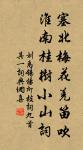 塞北梅花羌笛吹
淮南桂樹小山詞
劉禹錫楊柳枝詞九首
其一詞典網喜